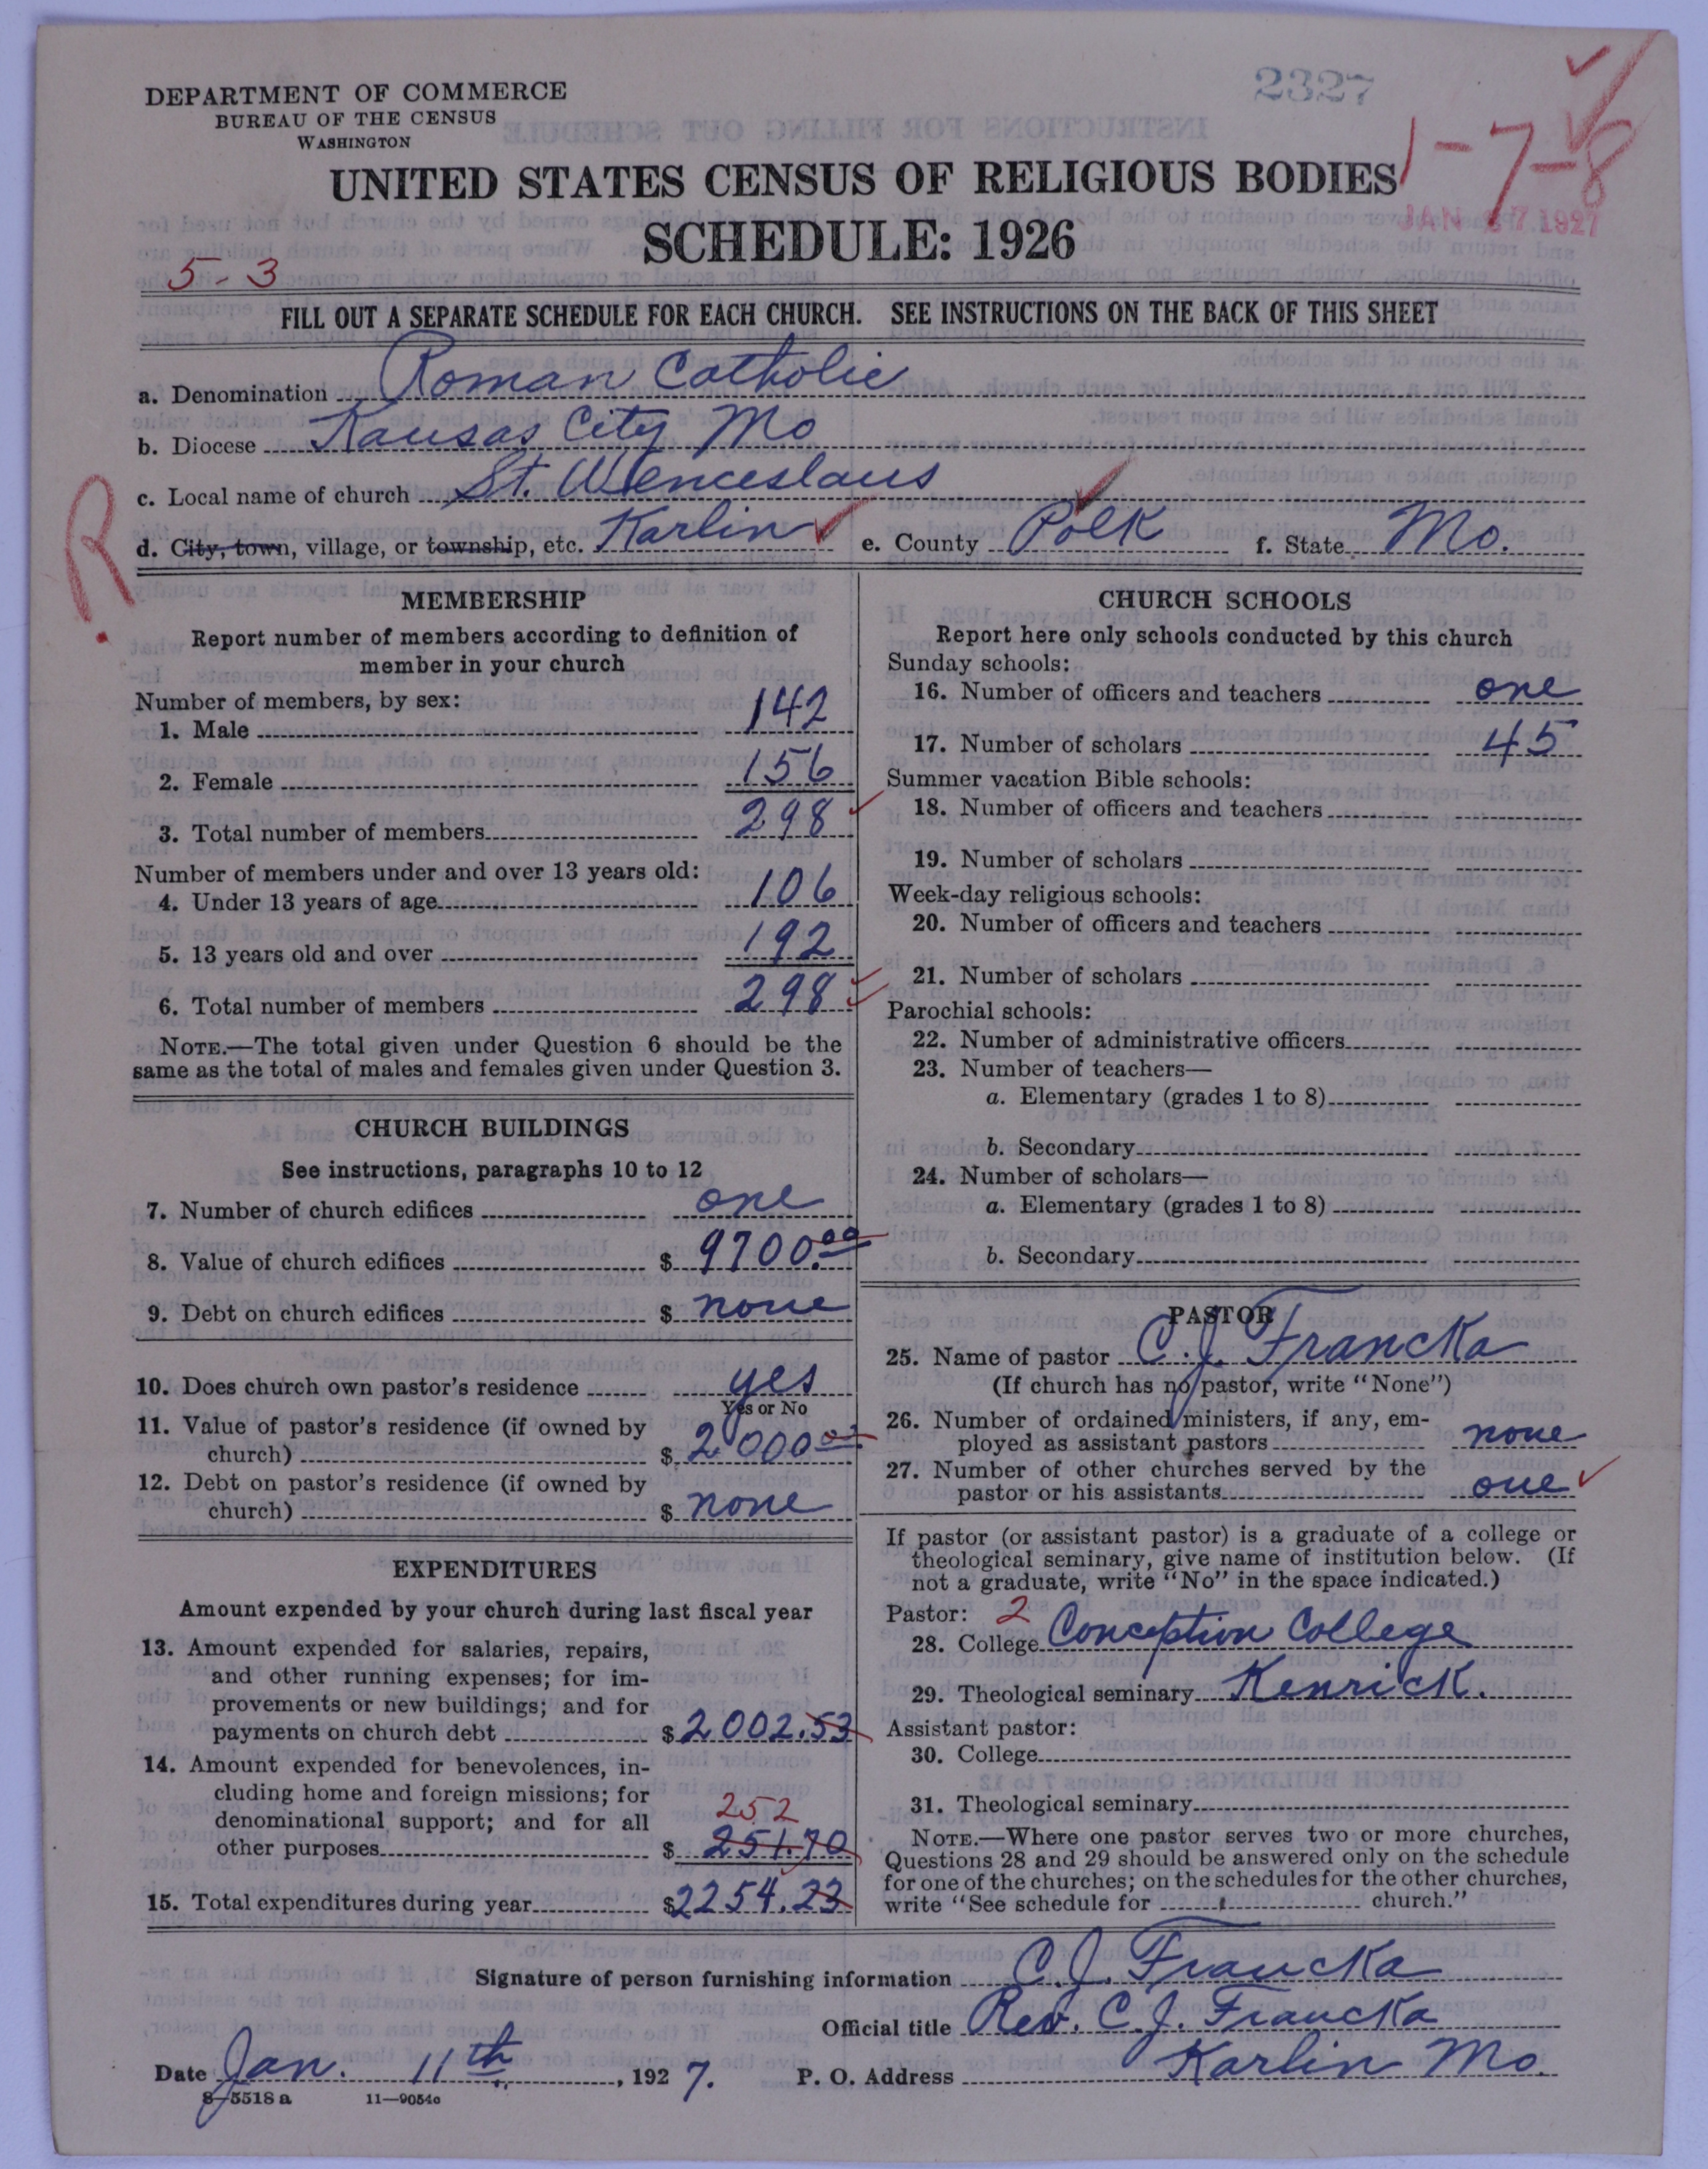 2327
DEPARTMENT OF COMMERCE
BUREAU OF THE CENSUS
WASHINGTON
1-7-8
UNITED STATES CENSUS OF RELIGIOUS BODIES
JAN 17 1927
SCHEDULE: 1926
5-3
FILL OUT A SEPARATE SCHEDULE FOR EACH CHURCH. SEE INSTRUCTIONS ON THE BACK OF THIS SHEET
a. Denomination Roman Catholic
b. Diocese Kansas City Mo
c. Local name of church St. Wenceslaus
R.
d. City, town, village, or township, etc. Karlin e. County Polk f. State Mo.
MEMBERSHIP
Report number of members according to definition of
member in your church
Number of members, by sex:
1. Male 142
2. Female 156
3. Total number of members 298
Number of members under and over 13 years old:
4. Under 13 years of age 106
5. 13 years old and over 192
6. Total number of members 298
NOTE.—The total given under Question 6 should be the
same as the total of males and females given under Question 3.
CHURCH BUILDINGS
See instructions, paragraphs 10 to 12
7. Number of church edifices one
8. Value of church edifices $ 9700.00
9. Debt on church edifices $ none
10. Does church own pastor's residence yes
Yes or No
11. Value of pastor's residence (if owned by
church) $ 2000.00
12. Debt on pastor's residence (if owned by
church) $ none
EXPENDITURES
Amount expended by your church during last fiscal year
13. Amount expended for salaries, repairs,
and other running expenses; for im-
provements or new buildings; and for
payments on church debt $ 2002.53
14. Amount expended for benevolences, in-
cluding home and foreign missions; for
denominational support; and for all 252
other purposes $ 251.70
15. Total expenditures during year $ 2254.23
CHURCH SCHOOLS
Report here only schools conducted by this church
Sunday schools:
16. Number of officers and teachers one
17. Number of scholars 45
Summer vacation Bible schools:
18. Number of officers and teachers
19. Number of scholars
Week-day religious schools:
20. Number of officers and teachers
21. Number of scholars
Parochial schools:
22. Number of administrative officers
23. Number of teachers—
a. Elementary (grades 1 to 8)
b. Secondary
24. Number of scholars—
a. Elementary (grades 1 to 8)
b. Secondary
PASTOR
25. Name of pastor C. J. Francka
(If church has no pastor, write "None")
26. Number of ordained ministers, if any, em-
ployed as assistant pastors none
27. Number of other churches served by the
pastor or his assistants one
If pastor (or assistant pastor) is a graduate of a college or
theological seminary, give name of institution below. (If
not a graduate, write "No" in the space indicated.)
Pastor: 2
28. College Conception College
29. Theological seminary Kenrick.
Assistant pastor:
30. College
31. Theological seminary
NOTE.—Where one pastor serves two or more churches,
Questions 28 and 29 should be answered only on the schedule
for one of the churches; on the schedules for the other churches,
write "See schedule for church."
Signature of person furnishing information C. J. Francka
Official title Rev. C. J. Francka
Date Jan. 11th, 1927. P. O. Address Karlin Mo.
8-5518 a 11-9054a